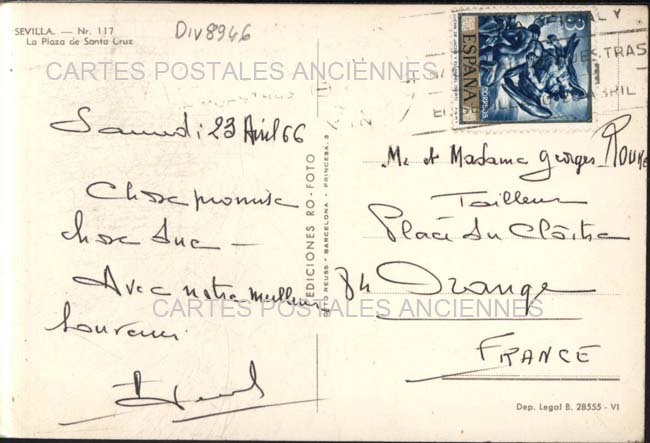 SEVILLA. — Nr. 117
La Plaza de Santa Cruz
DIV8946
CARTES POSTALES ANCIENNES
ESPAÑA
CORREOS
ABRIL
Samedi 23 Avril 66
Chose promise
chose due —
Avec notre meilleur
souvenir
EDICIONES RO-FOTO
OTTO REUSS - BARCELONA - PRINCESA, 3
Mr et Madame Georges
Tailleur
Place du Cloître
84 Orange
FRANCE
CARTES POSTALES ANCIENNES
Dep. Legal B. 28555 - VI